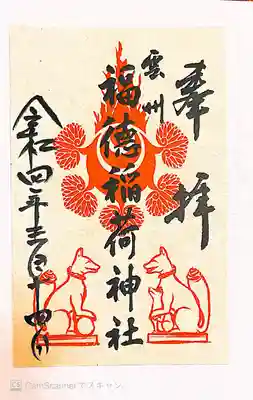 奉拝
雲州
福徳稲荷神社
令和四年三月十四日
CamScannerでスキャン